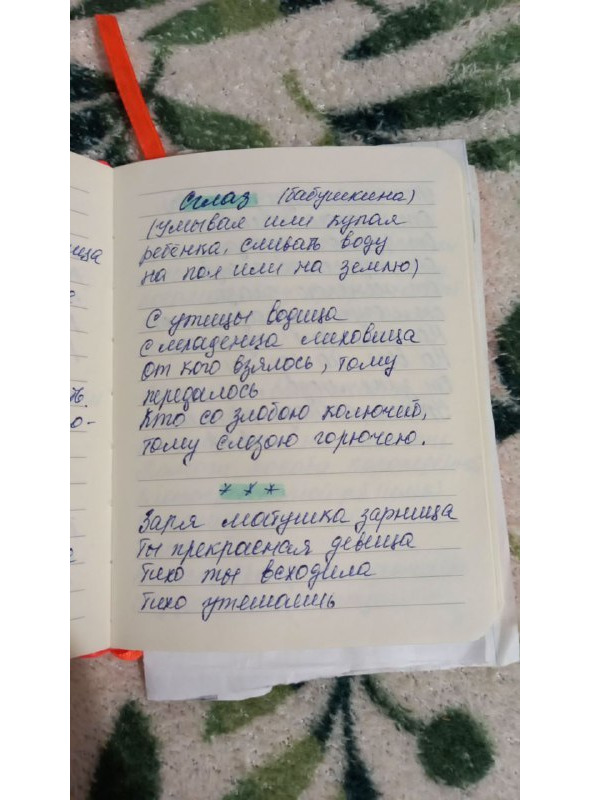 Сглаз (бабушкина)
(умывая или купая
ребёнка, сливать воду
на пол или на землю)
С утицы водица
С младенца лиховица
От кого взялось, тому
передалось
Кто со злобою колючей,
тому слезою горючею.
* * *
Заря матушка зарница
Ты прекрасная девица
Тихо ты всходила
Тихо утешаишь